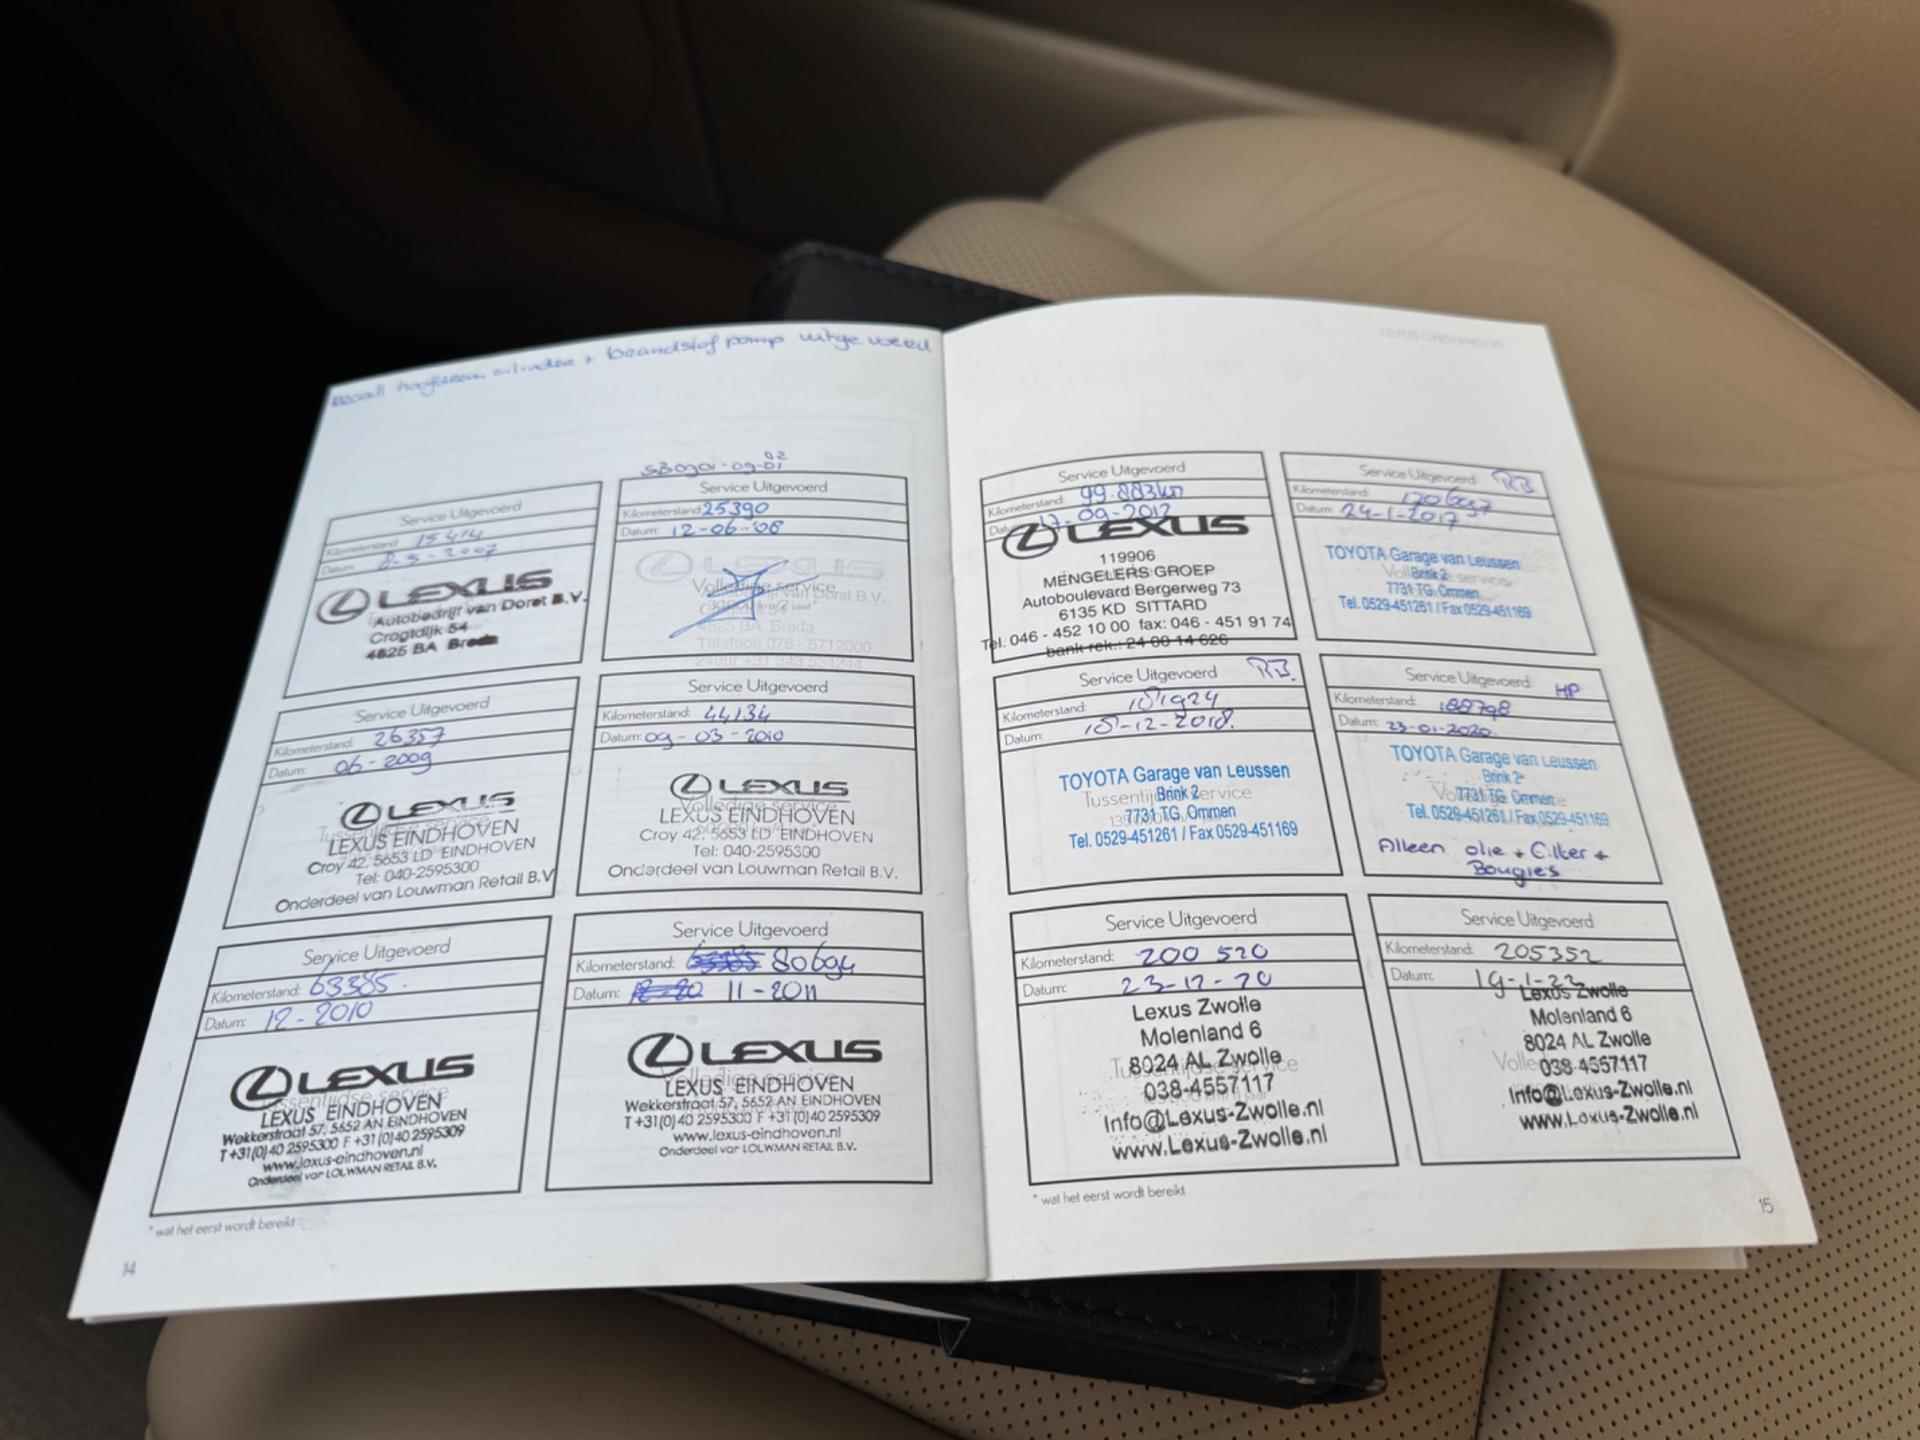 Recall hoofdrem cilinder + brandstof pomp uitgevoerd
Service Uitgevoerd
Kilometerstand: 15414
Datum: 8-5-2007
LEXUS
Autobedrijf van Dorst B.V.
Crogtdijk 54
4825 BA Breda
Service Uitgevoerd
Kilometerstand: 25390
Datum: 12-06-08
LEXUS
Volledige service
Service Uitgevoerd
Kilometerstand: 26357
Datum: 06-2009
LEXUS
Tussentijdse service
LEXUS EINDHOVEN
Croy 42, 5653 LD EINDHOVEN
Tel: 040-2595300
Onderdeel van Louwman Retail B.V.
Service Uitgevoerd
Kilometerstand: 44134
Datum: 09-03-2010
LEXUS
Volledige service
LEXUS EINDHOVEN
Croy 42, 5653 LD EINDHOVEN
Tel: 040-2595300
Onderdeel van Louwman Retail B.V.
Service Uitgevoerd
Kilometerstand: 63385
Datum: 12-2010
LEXUS
Tussentijdse service
LEXUS EINDHOVEN
Wekkerstraat 57, 5652 AN EINDHOVEN
T +31(0)40 2595300 F +31(0)40 2595309
www.lexus-eindhoven.nl
Onderdeel van LOUWMAN RETAIL B.V.
Service Uitgevoerd
Kilometerstand: 80694
Datum: 11-2011
LEXUS
Volledige service
LEXUS EINDHOVEN
Wekkerstraat 57, 5652 AN EINDHOVEN
T +31(0)40 2595300 F +31(0)40 2595309
www.lexus-eindhoven.nl
Onderdeel van LOUWMAN RETAIL B.V.
* wat het eerst wordt bereikt
14
Service Uitgevoerd
Kilometerstand: 99.883km
Datum: 17-09-2012
LEXUS
119906
MENGELERS GROEP
Autoboulevard Bergerweg 73
6135 KD SITTARD
Tel. 046 - 452 10 00 fax: 046 - 451 91 74
bank rek.: 24 00 14 626
Service Uitgevoerd RB
Kilometerstand:
Datum: 24-1-2017
TOYOTA Garage van Leussen
Volledige service
Brink 2
7731 TG Ommen
Tel. 0529-451261 / Fax 0529-451169
Service Uitgevoerd RB.
Kilometerstand: 181924
Datum: 18-12-2018.
TOYOTA Garage van Leussen
Tussentijdse service
Brink 2
7731 TG Ommen
Tel. 0529-451261 / Fax 0529-451169
Service Uitgevoerd HP
Kilometerstand: 188798
Datum: 23-01-2020
TOYOTA Garage van Leussen
Brink 2
7731 TG Ommen
Tel. 0529-451261 / Fax 0529-451169
Alleen olie + Filter +
Bougies
Service Uitgevoerd
Kilometerstand: 200 520
Datum: 23-12-20
Lexus Zwolle
Molenland 6
8024 AL Zwolle
Tussentijdse service
038-4557117
Info@Lexus-Zwolle.nl
www.Lexus-Zwolle.nl
Service Uitgevoerd
Kilometerstand: 205352
Datum: 19-1-22
Lexus Zwolle
Molenland 6
8024 AL Zwolle
038-4557117
Info@Lexus-Zwolle.nl
www.Lexus-Zwolle.nl
* wat het eerst wordt bereikt
15